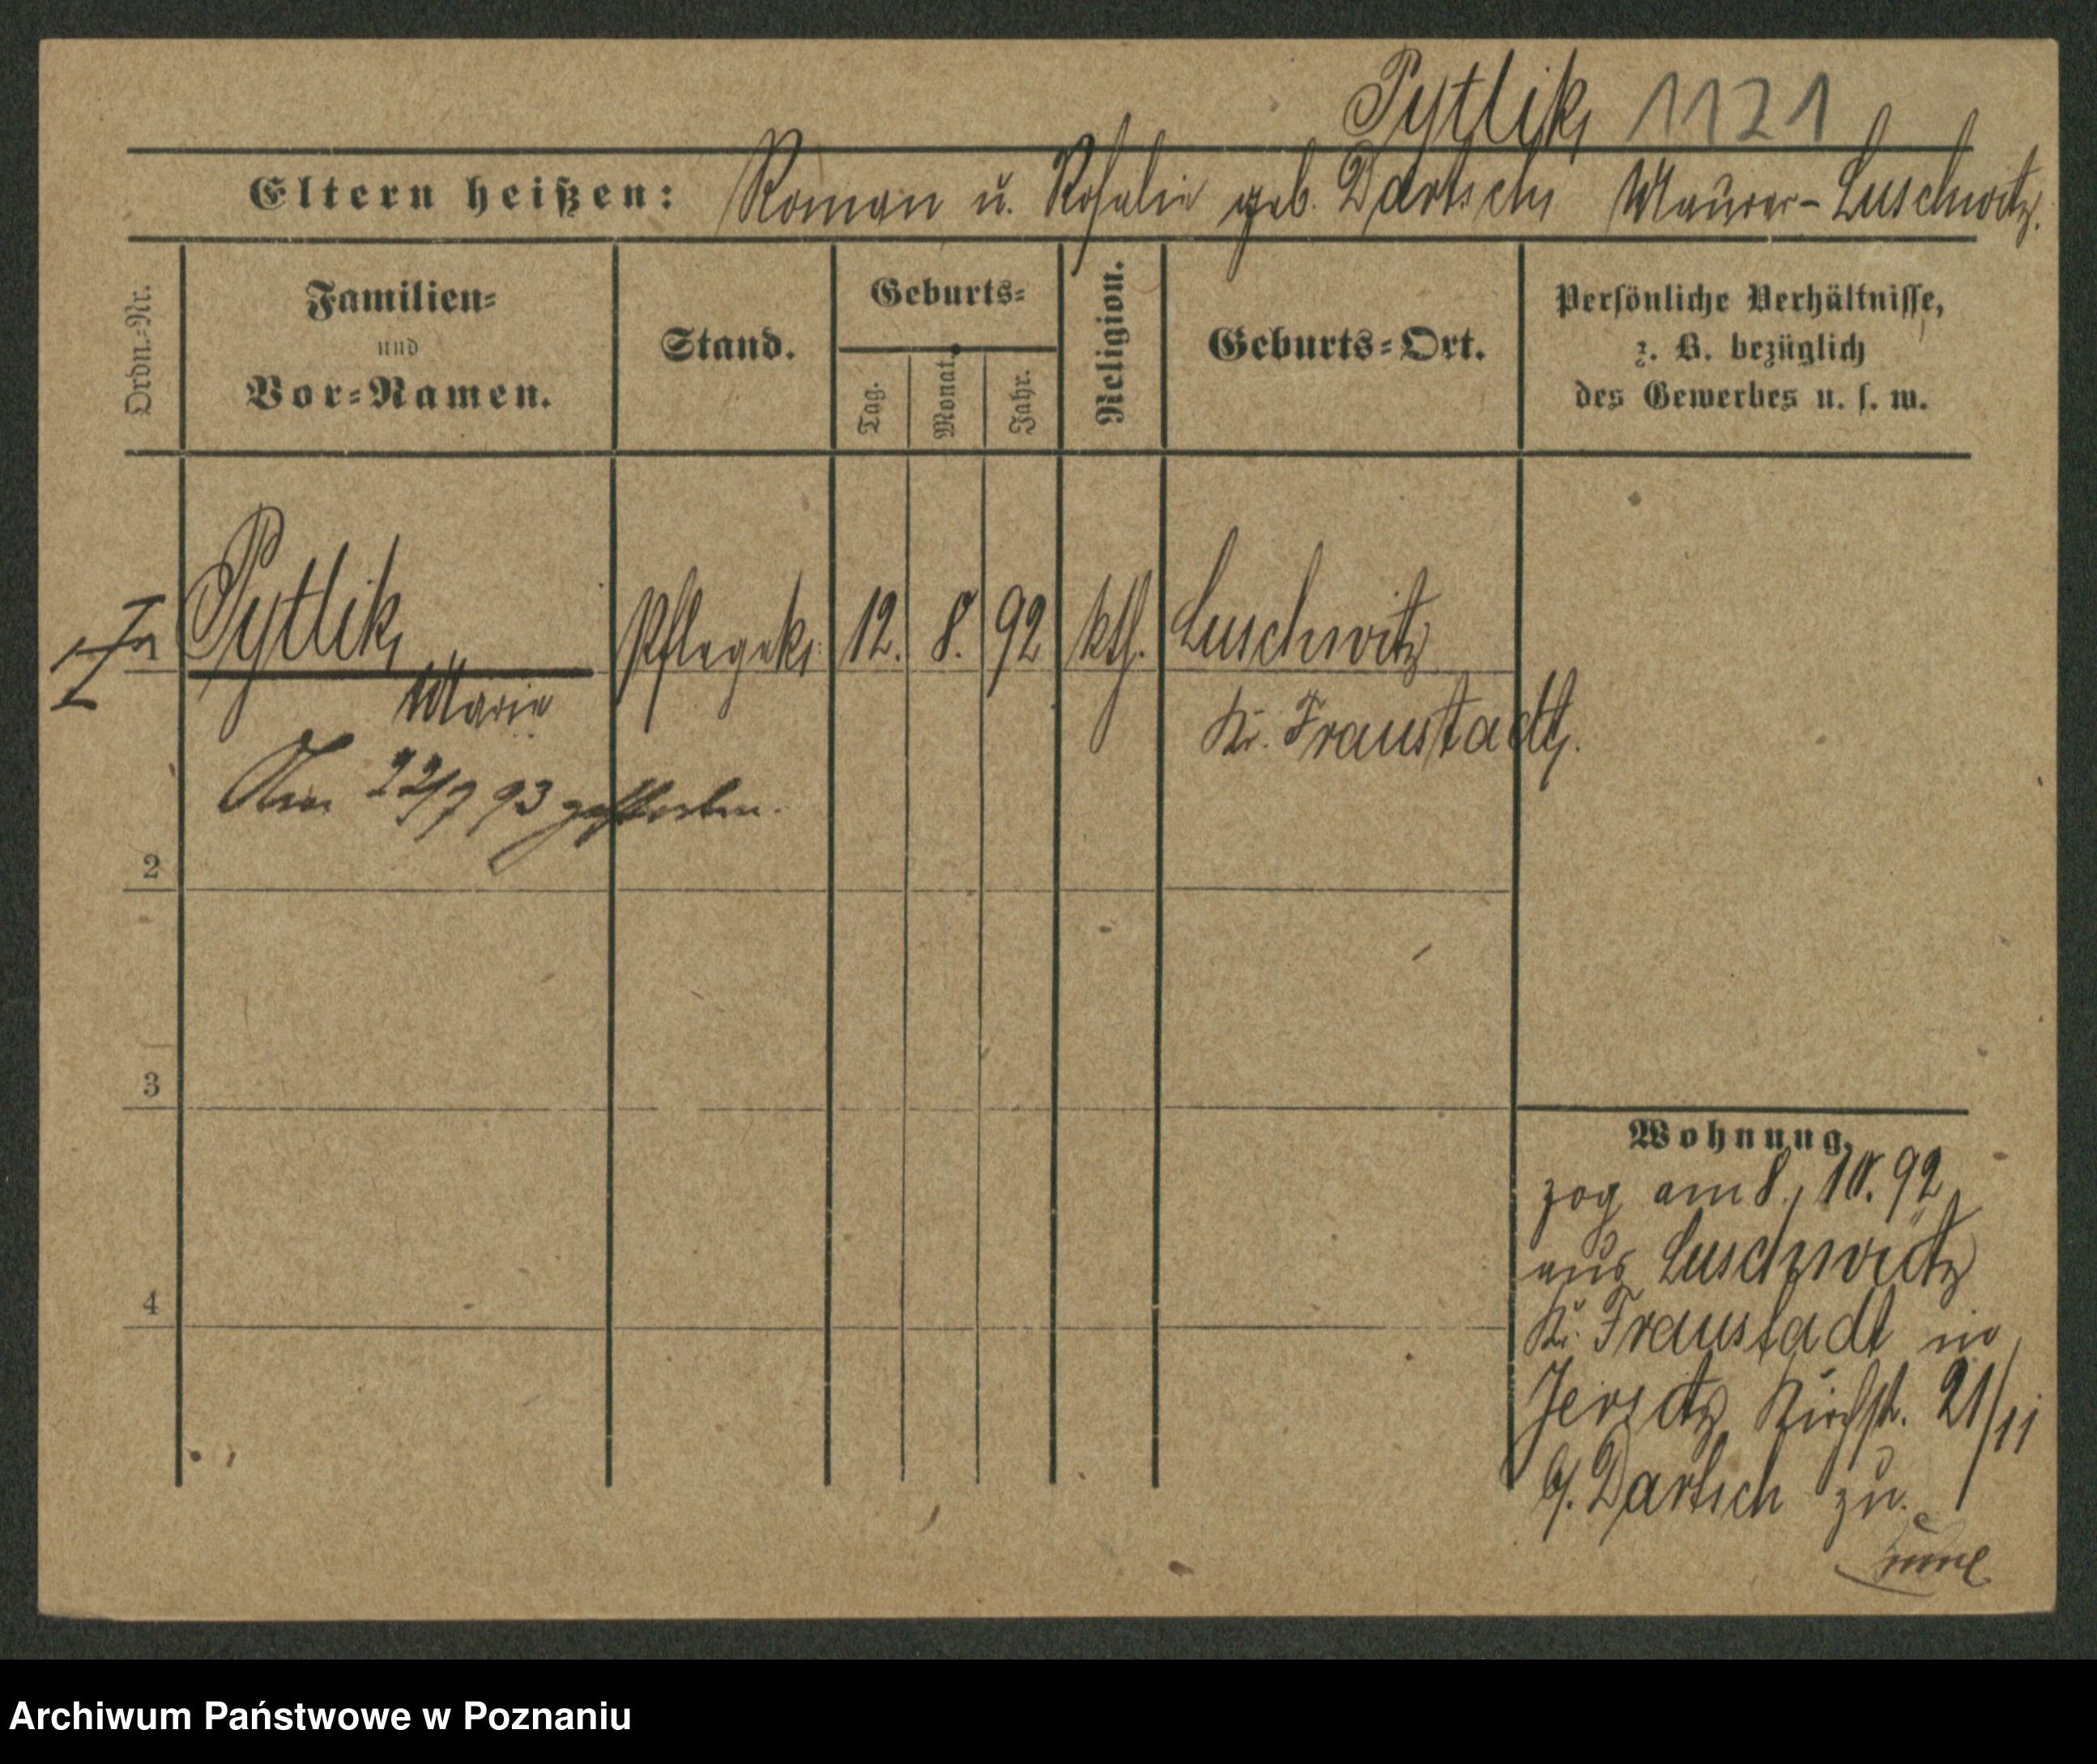 Pytlik 1121
Eltern heißen: Roman u. Rosalie geb. Dartsch Maurer-Luschwitz.
Ordn.-Nr.
Familien-
und
Vor-Namen.
Stand.
Geburts-
Tag.
Monat.
Jahr.
Religion.
Geburts-Ort.
Persönliche Verhältnisse,
z. B. bezüglich
des Gewerbes u. s. w.
1 Pytlik Pflegek. 12. 8. 92 kth. Luschwitz
Marie Kr. Fraustadt.
Am 22/7 93 gestorben.
2
3
4
Wohnung.
zog am 8. 10. 92
aus Luschwitz
Kr. Fraustadt in
Jersitz Kirchst. 21/11
b/. Dartsch zu.
Archiwum Państwowe w Poznaniu